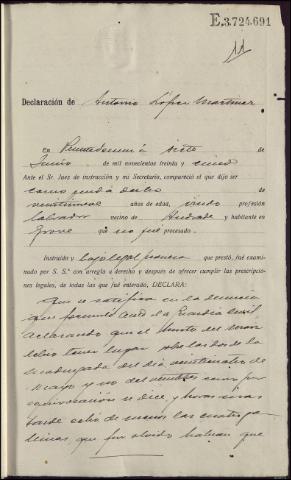 E.3.724.691
11
Declaración de Antonio López Martínez
en Puentedeume á siete de
Junio de mil novecientos treinta y cinco
Ante el Sr. Juez de instrucción y mi Secretario, compareció el que dijo ser
como queda dicho de
años de edad, viudo profesión
labrador vecino de Andrade y habitante en
que no fué procesado.
Instruído y bajo legal promesa que prestó, fué examinado
por S. S.ª con arreglo a derecho y después de ofrecer cumplir las prescripciones
legales, de todas las que fué enterado, DECLARA:
Que se ratifica en la denuncia
que formuló ante la Guardia Civil,
aclarando que el hurto del
debió tener lugar sobre las dos de la
madrugada del día veinticuatro de
Mayo y no del veintitres como por
equivocación se dice, y horas mas
tarde echó de menos las cuatro ga-
llinas, que por olvido habían que